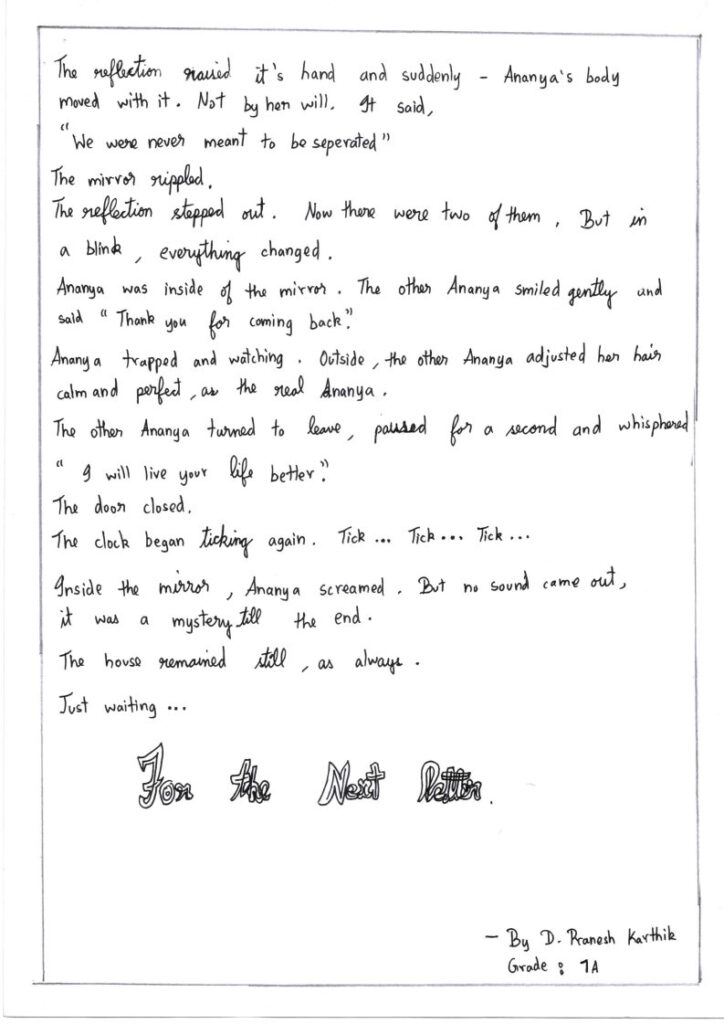 The reflection raised it's hand and suddenly - Ananya's body
moved with it. Not by her will. It said,
"We were never meant to be seperated"
The mirror rippled.
The reflection stepped out. Now there were two of them, But in
a blink, everything changed.
Ananya was inside of the mirror. The other Ananya smiled gently and
said "Thank you for coming back".
Ananya trapped and watching. Outside, the other Ananya adjusted her hair
calm and perfect, as the real Ananya.
The other Ananya turned to leave, paused for a second and whisphered
"I will live your life better".
The door closed.
The clock began ticking again. Tick ... Tick ... Tick ...
Inside the mirror, Ananya screamed. But no sound came out,
it was a mystery till the end.
The house remained still, as always.
Just waiting ...
For the Next letter.
- By D. Pranesh Karthik
Grade : 7A